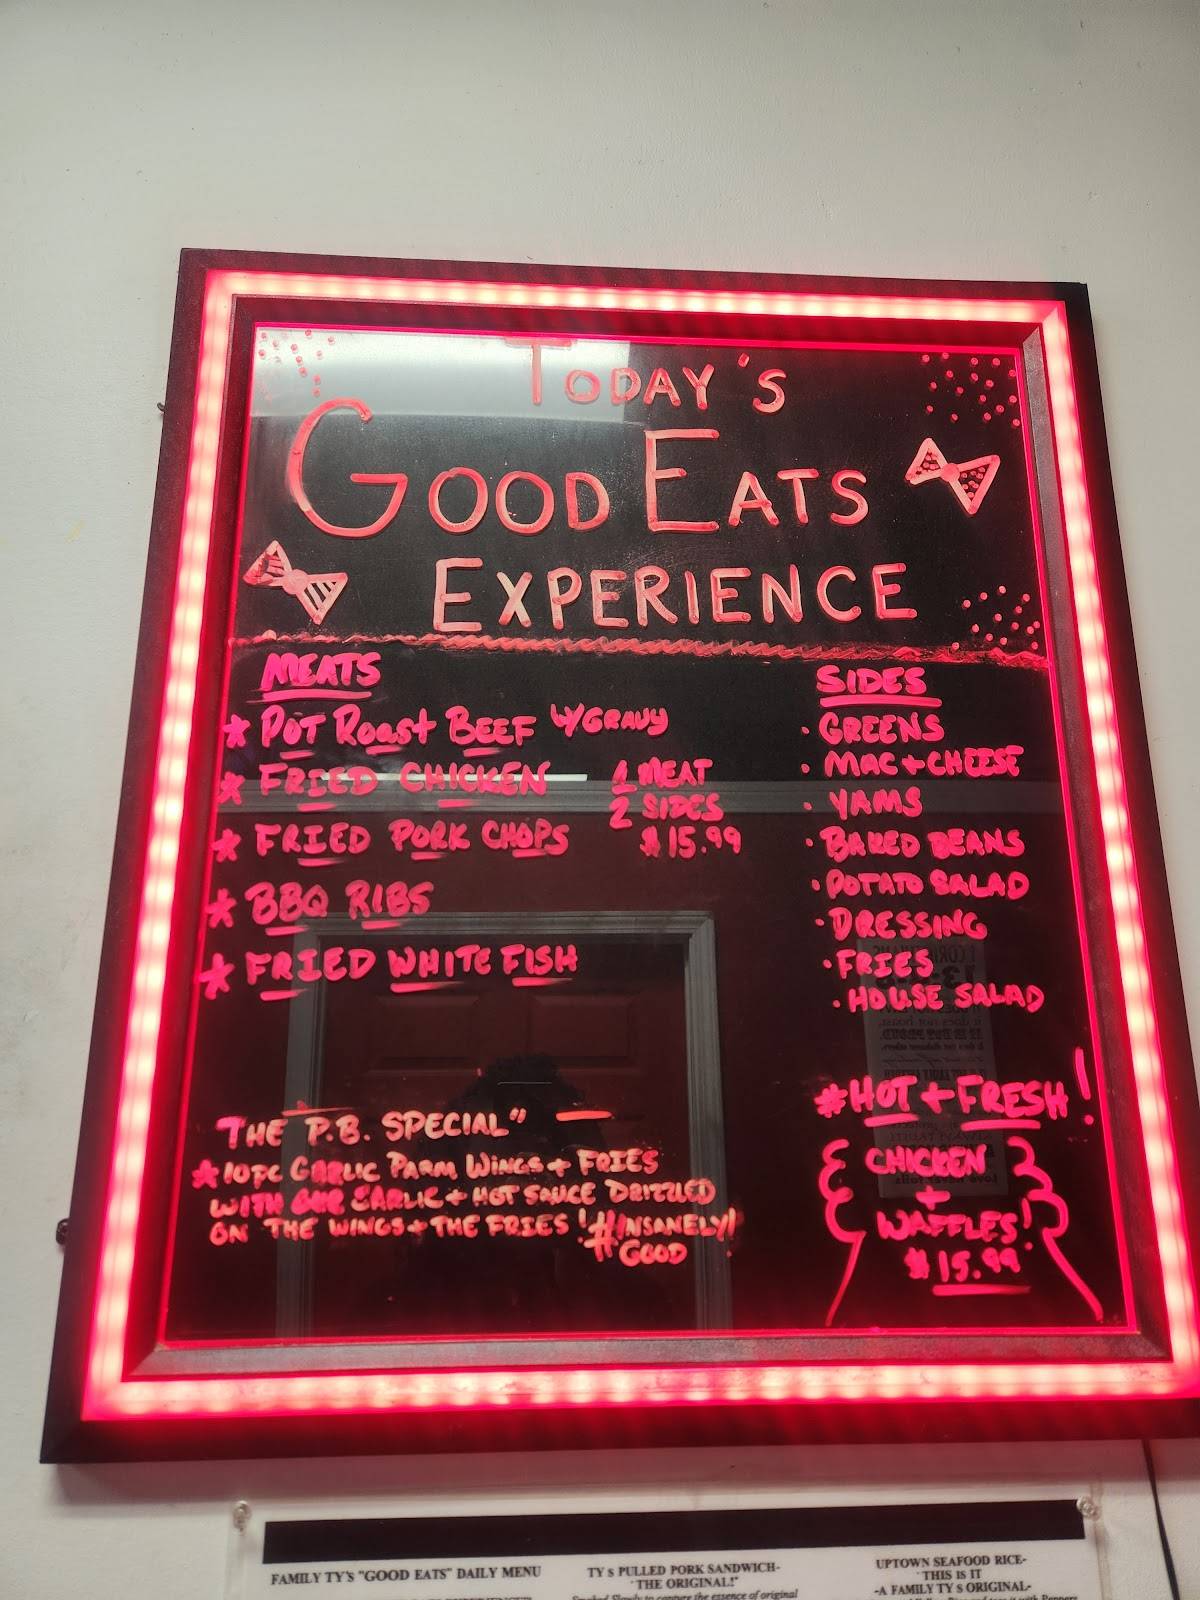 TODAY'S
GOOD EATS
EXPERIENCE
MEATS
★ POT ROAST BEEF W/GRAVY
★ FRIED CHICKEN
★ FRIED PORK CHOPS
★ BBQ RIBS
★ FRIED WHITE FISH
1 MEAT
2 SIDES
$15.99
SIDES
• GREENS
• MAC + CHEESE
• YAMS
• BAKED BEANS
• POTATO SALAD
• DRESSING
• FRIES
• HOUSE SALAD
THE P.B. SPECIAL"
★ 10PC GARLIC PARM WINGS + FRIES
WITH OUR GARLIC + HOT SAUCE DRIZZLED
ON THE WINGS + THE FRIES! #INSANELY!
GOOD
#HOT + FRESH!
CHICKEN
+
WAFFLES!
$15.99
FAMILY TY'S "GOOD EATS" DAILY MENU
TY S PULLED PORK SANDWICH-
"THE ORIGINAL!"
Smoked Slowly to capture the essence of original
UPTOWN SEAFOOD RICE-
THIS IS IT
-A FAMILY TY S ORIGINAL-